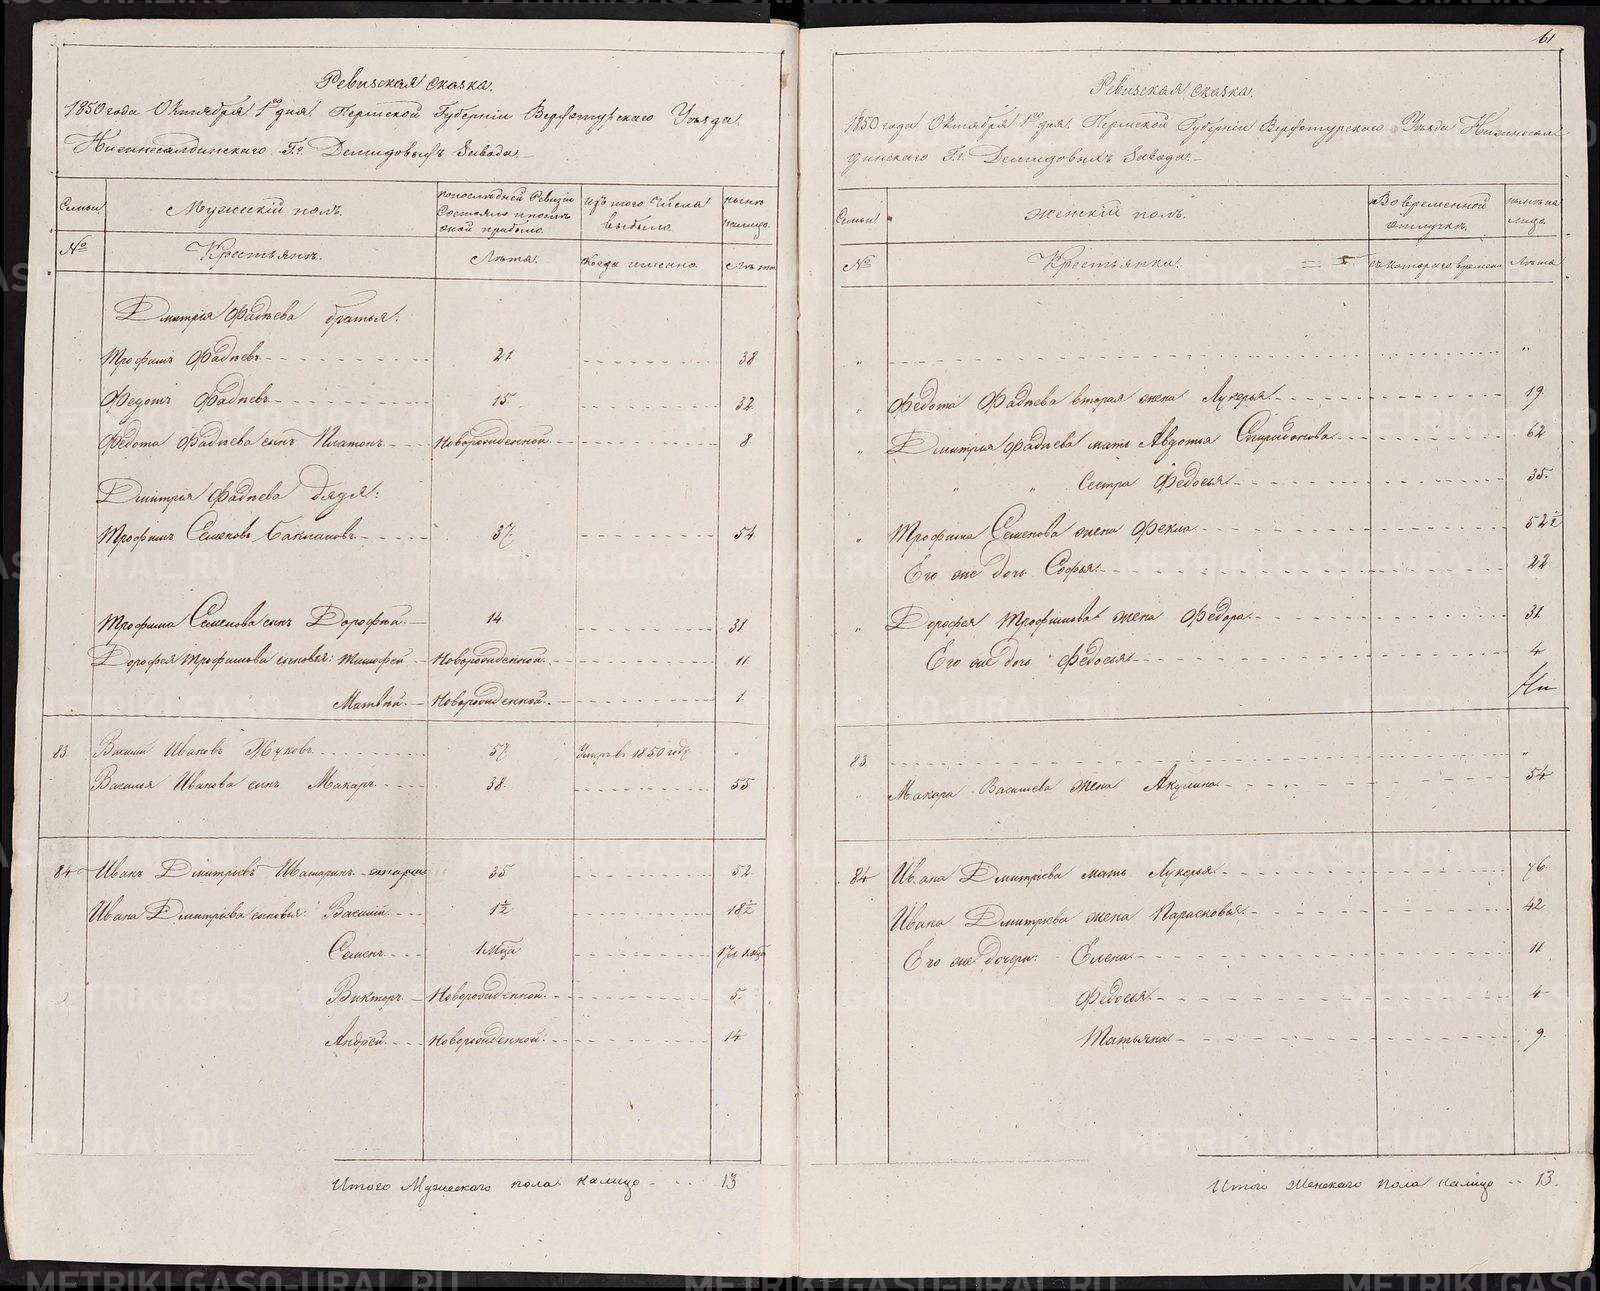 Ревизская сказка.
1850 года Октября 1го дня. Пермской Губерніи Верхотурскаго Уѣзда.
Нижнесалдинскаго Гг. Демидовыхъ Завода
Семьи
Мужескій полъ.
По послѣдней Ревизіи
Состояло и послѣ
оной прибыло.
Изъ того числа
выбыло.
нынѣ
налицо.
№
Крестьянъ.
Лѣта.
Когда именно.
Лѣта
Дмитрія Фадѣева братья:
Трофимъ Фадѣевъ 21 38
Федотъ Фадѣевъ 15 32
Федота Фадѣева сынъ Платонъ Новорожденной 8
Дмитрія Фадѣева дядя:
Трофимъ Семеновъ Баклановъ 37 54
Трофима Семенова сынъ Дорофѣй 14 31
Дорофея Трофимова сыновья: Тимофей Новорожденной 11
Матвѣй Новорожденной 1
83 Василій Ивановъ Жуковъ 57 Умеръ въ 1850 году "
Василья Иванова сынъ Макаръ 38 55
84 Иванъ Дмитріевъ Шатаринъ старш 35 52
Ивана Дмитріева сыновья: Василій 1½ 18½
Семенъ 1 мца 17 и 1 мца
Викторъ Новорожденной 5
Андрей Новорожденной 14
Итого Мужескаго пола налицо 13
61
Ревизская сказка.
1850 года Октября 1го дня. Пермской Губерніи Верхотурскаго Уѣзда Нижнесал
динскаго Гг. Демидовыхъ Завода
Семьи
Женскій полъ.
Во временной
отлучкѣ.
нынѣ на
лицо.
№
Крестьянки.
съ котораго времени
Лѣта
" "
" Федота Фадѣева вторая жена Лукерья 19
" Дмитрия Фадѣева мать Авдотья Спиридонова 62
" " Сестра Федосья 35
" Трофима Семенова жена Фекла 52½
Его же дочь Софья 22
" Дорофея Трофимова жена Федора 31
Его же дочь Федосья 4
83 "
Макара Васильева жена Акулина 54
84 Ивана Дмитріева мать Лукерья 76
Ивана Дмитріева жена Парасковья 42
Его же дочери: Елена 11
Федосья 4
Татьяна 9
Итого Женскаго пола налицо 13.
METRIKI.GASO-URAL.RU